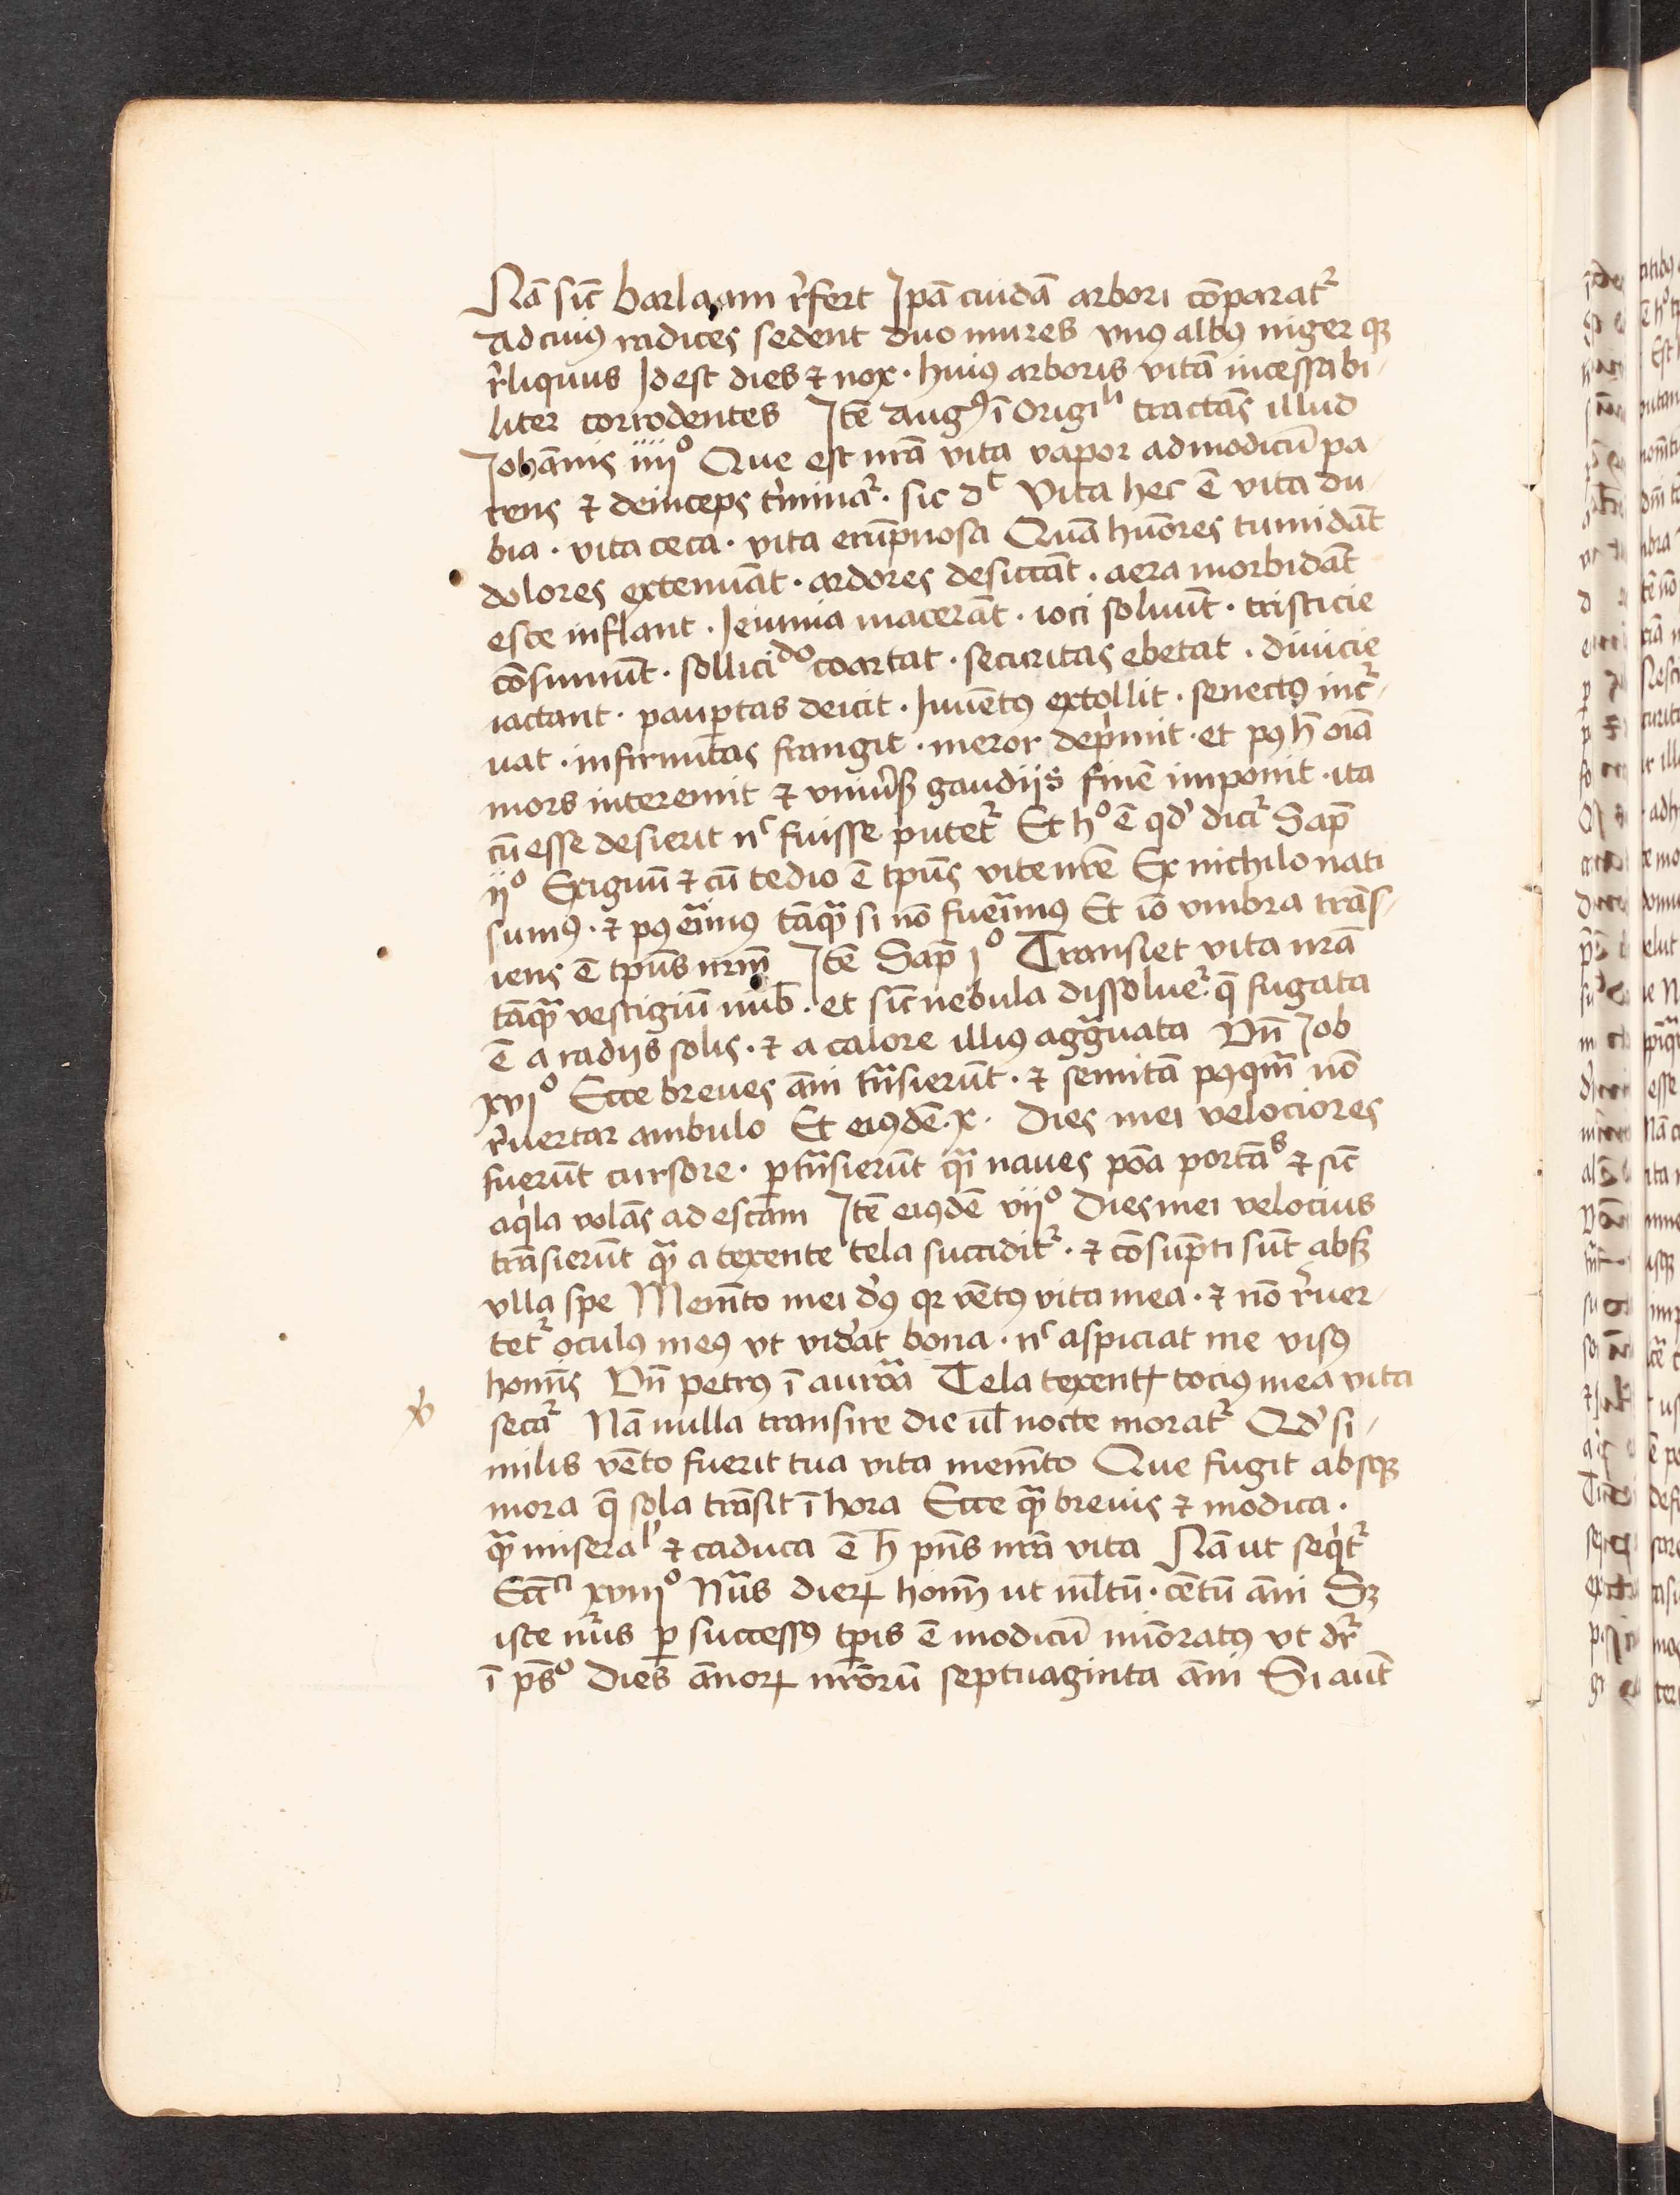 Nā sic̄ barlaam r̓fert Jpā cuidā arbori cōparatʳ
Ad cuiꝰ radices sedent duo mures vnꝰ albꝰ niger qꝫ
r̓liquus Jd est dies ⁊ nox · huiꝰ arboris vitā incessabi-
liter corrodentes Jtē Augꝰ ī origiˡⁱ tractās illud
Johānis iiijº Que est nr̄a vita vapor ad modicū pa
rens ⁊ deinceps t̓minaʳ · sic dᵗ Vita hec ē vita du-
bia · vita ceca · vita erūpnosa Quā hūores tumidāt
dolores extenuāt · ardores desiccāt · aera morbidāt
esce inflant · Jeiunia macerāt · ioci soluūt · tristicie
cōsumūt · solliciᵈº coartat · securitas ebetat · diuicie
iactant · paup̱tas deicit · Juuētꝰ extollit · senectꝰ incʳ-
uat · infirmitas frangit · meror dep̓mit · et pꝰ h̄ oīa
mors interemit ⁊ vniu̓sꝭ gaudijs finē imponit · ita
cū esse desierit nᶜ fuisse putetʳ Et hº ē qd̓ diciʳ Sap̄
ijº Exiguū ⁊ cū tedio ē tp̄us vite nr̄e Ex nichilo nati
sumꝰ · ⁊ pꝰ eᵃimꝰ tāqᵃ si nō fueᵃimꝰ Et iō vmbra trās-
iens ē tp̄us nr̄m Jtē Sap̄ jº Transiet vita nr̄a
tāqᵃ vestigiū nub̄ · et sic̄ nebula dissolueʳ q̄ fugata
ē a radijs solis · ⁊ a calore illiꝰ aggᵃuata Vn̄ Job
xvjº Ecce breues āni tn̄sierūt · ⁊ semitā pꝰqm̄ nō
r̓uertar ambulo Et eiꝰdē · x · Dies mei velociores
fuerūt cursore · p̱tn̄sierūt qᵃi naues poā portāˢ ⁊ sic̄
aqⁱla volās ad escam Jtē eiꝰdē vijº Dies mei velocius
trāsierūt qᵃ a texente tela succiditʳ · ⁊ cōsūpti sūt absꝫ
vlla spe Memēto mei dꝰ qꝛ vētꝰ vita mea · ⁊ nō r̓uer-
tetʳ oculꝰ meꝰ vt vid̓at bona · nᶜ aspiciat me visꝰ
homīs Vn̄ petrꝰ ī aurᵃa Tela texentꝭ tociꝰ mea vita
secaʳ Nā nulla transire die ul̄ nocte moratʳ Qd̓ si-
milis vēto fuerit tua vita memēto Que fugit absqꝫ
mora q̄ sola trāsit ī hora Ecce qᵃ breuis ⁊ modica ·
qᵃ miseraˡⁱ ⁊ caduca ē h̄ pn̄s nr̄a vita Nā ut seqⁱtʳ
Ecc̄ⁱ xviijº Nūs dierꝝ homī ut ml̄tū · cētū āni Sꝫ
iste nūs p̱ successꝰ tp̱is ē modicū mīoratꝰ vt dr̄
ī ps̄º Dies ānorꝝ nr̄orū septuaginta āni Si aut̄